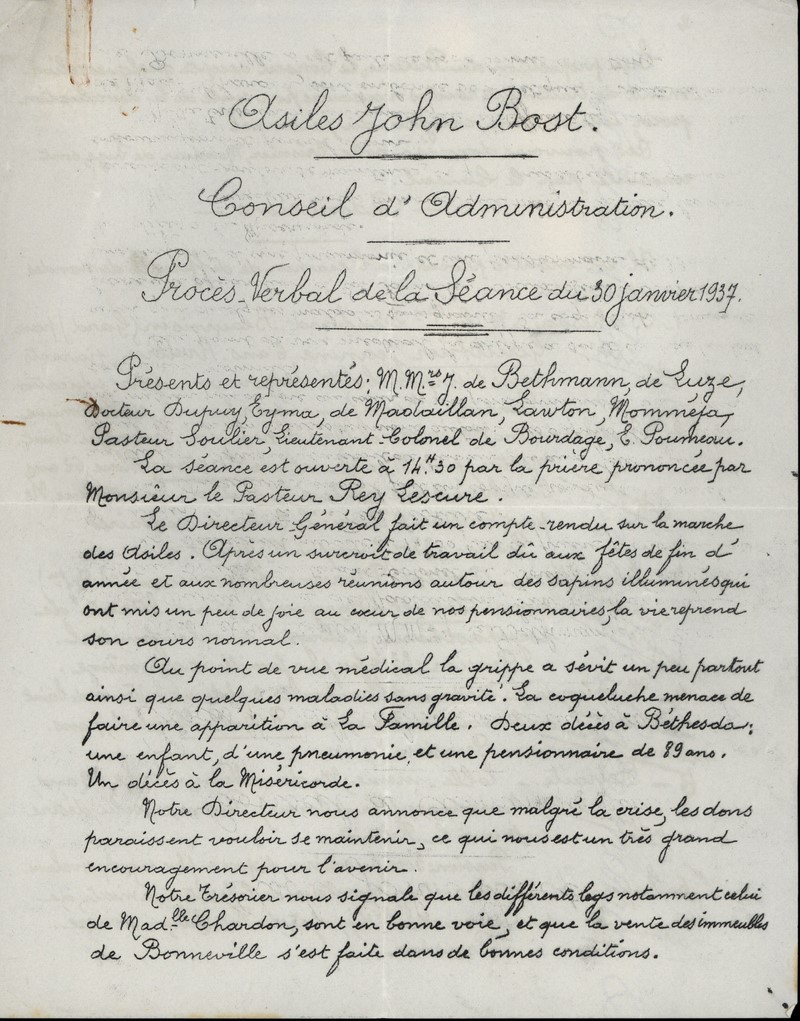 Asiles John Bost.
Conseil d'Administration.
Procès-Verbal de la Séance du 30 janvier 1937.
Présents et représentés: M.M.rs J. de Bethmann, de Luze,
Docteur Dupuy, Eyma, de Madaillan, Lawton, Momméja,
Pasteur Soulier, Lieutenant Colonel de Bourdage, E. Poumeau.
La séance est ouverte à 14.H30 par la prière prononcée par
Monsieur le Pasteur Rey Lescure.
Le Directeur Général fait un compte-rendu sur la marche
des Asiles. Après un surcroit de travail dû aux fêtes de fin d'
année et aux nombreuses réunions autour des sapins illuminés qui
ont mis un peu de joie au cœur de nos pensionnaires, la vie reprend
son cours normal.
Au point de vue médical la grippe a sévit un peu partout
ainsi que quelques maladies sans gravité. La coqueluche menace de
faire une apparition à La Famille. Deux décès à Béthesda:
une enfant, d'une pneumonie, et une pensionnaire de 89 ans.
Un décès à la Miséricorde.
Notre Directeur nous annonce que malgré la crise, les dons
paraissent vouloir se maintenir, ce qui nous est un très grand
encouragement pour l'avenir.
Notre Trésorier nous signale que les différents legs notamment celui
de Mad.lle Chardon, sont en bonne voie, et que la vente des immeubles
de Bonneville s'est faite dans de bonnes conditions.